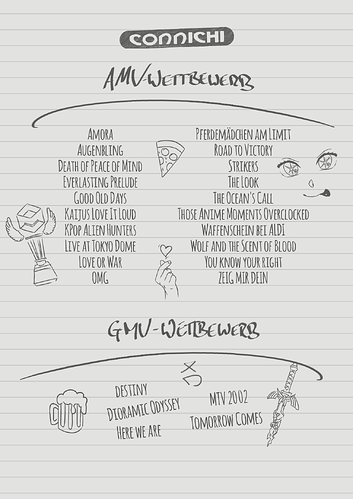 CONNICHI
AMV-WETTBEWERB
AMORA
AUGENBLING
DEATH OF PEACE OF MIND
EVERLASTING PRELUDE
GOOD OLD DAYS
KAIJUS LOVE IT LOUD
KPOP ALIEN HUNTERS
LIVE AT TOKYO DOME
LOVE OR WAR
OMG
PFERDEMÄDCHEN AM LIMIT
ROAD TO VICTORY
STRIKERS
THE LOOK
THE OCEAN'S CALL
THOSE ANIME MOMENTS OVERCLOCKED
WAFFENSCHEIN BEI ALDI
WOLF AND THE SCENT OF BLOOD
YOU KNOW YOUR RIGHT
ZEIG MIR DEIN
GMV-WETTBEWERB
DESTINY
DIORAMIC ODYSSEY
HERE WE ARE
MTV 2002
TOMORROW COMES